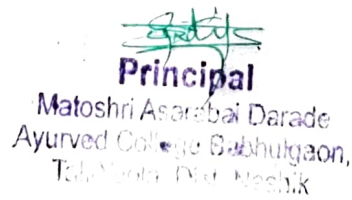 Principal
Matoshri Asarabai Darade
Ayurved College Babhulgaon,
Tal. Yeola, Dist. Nashik